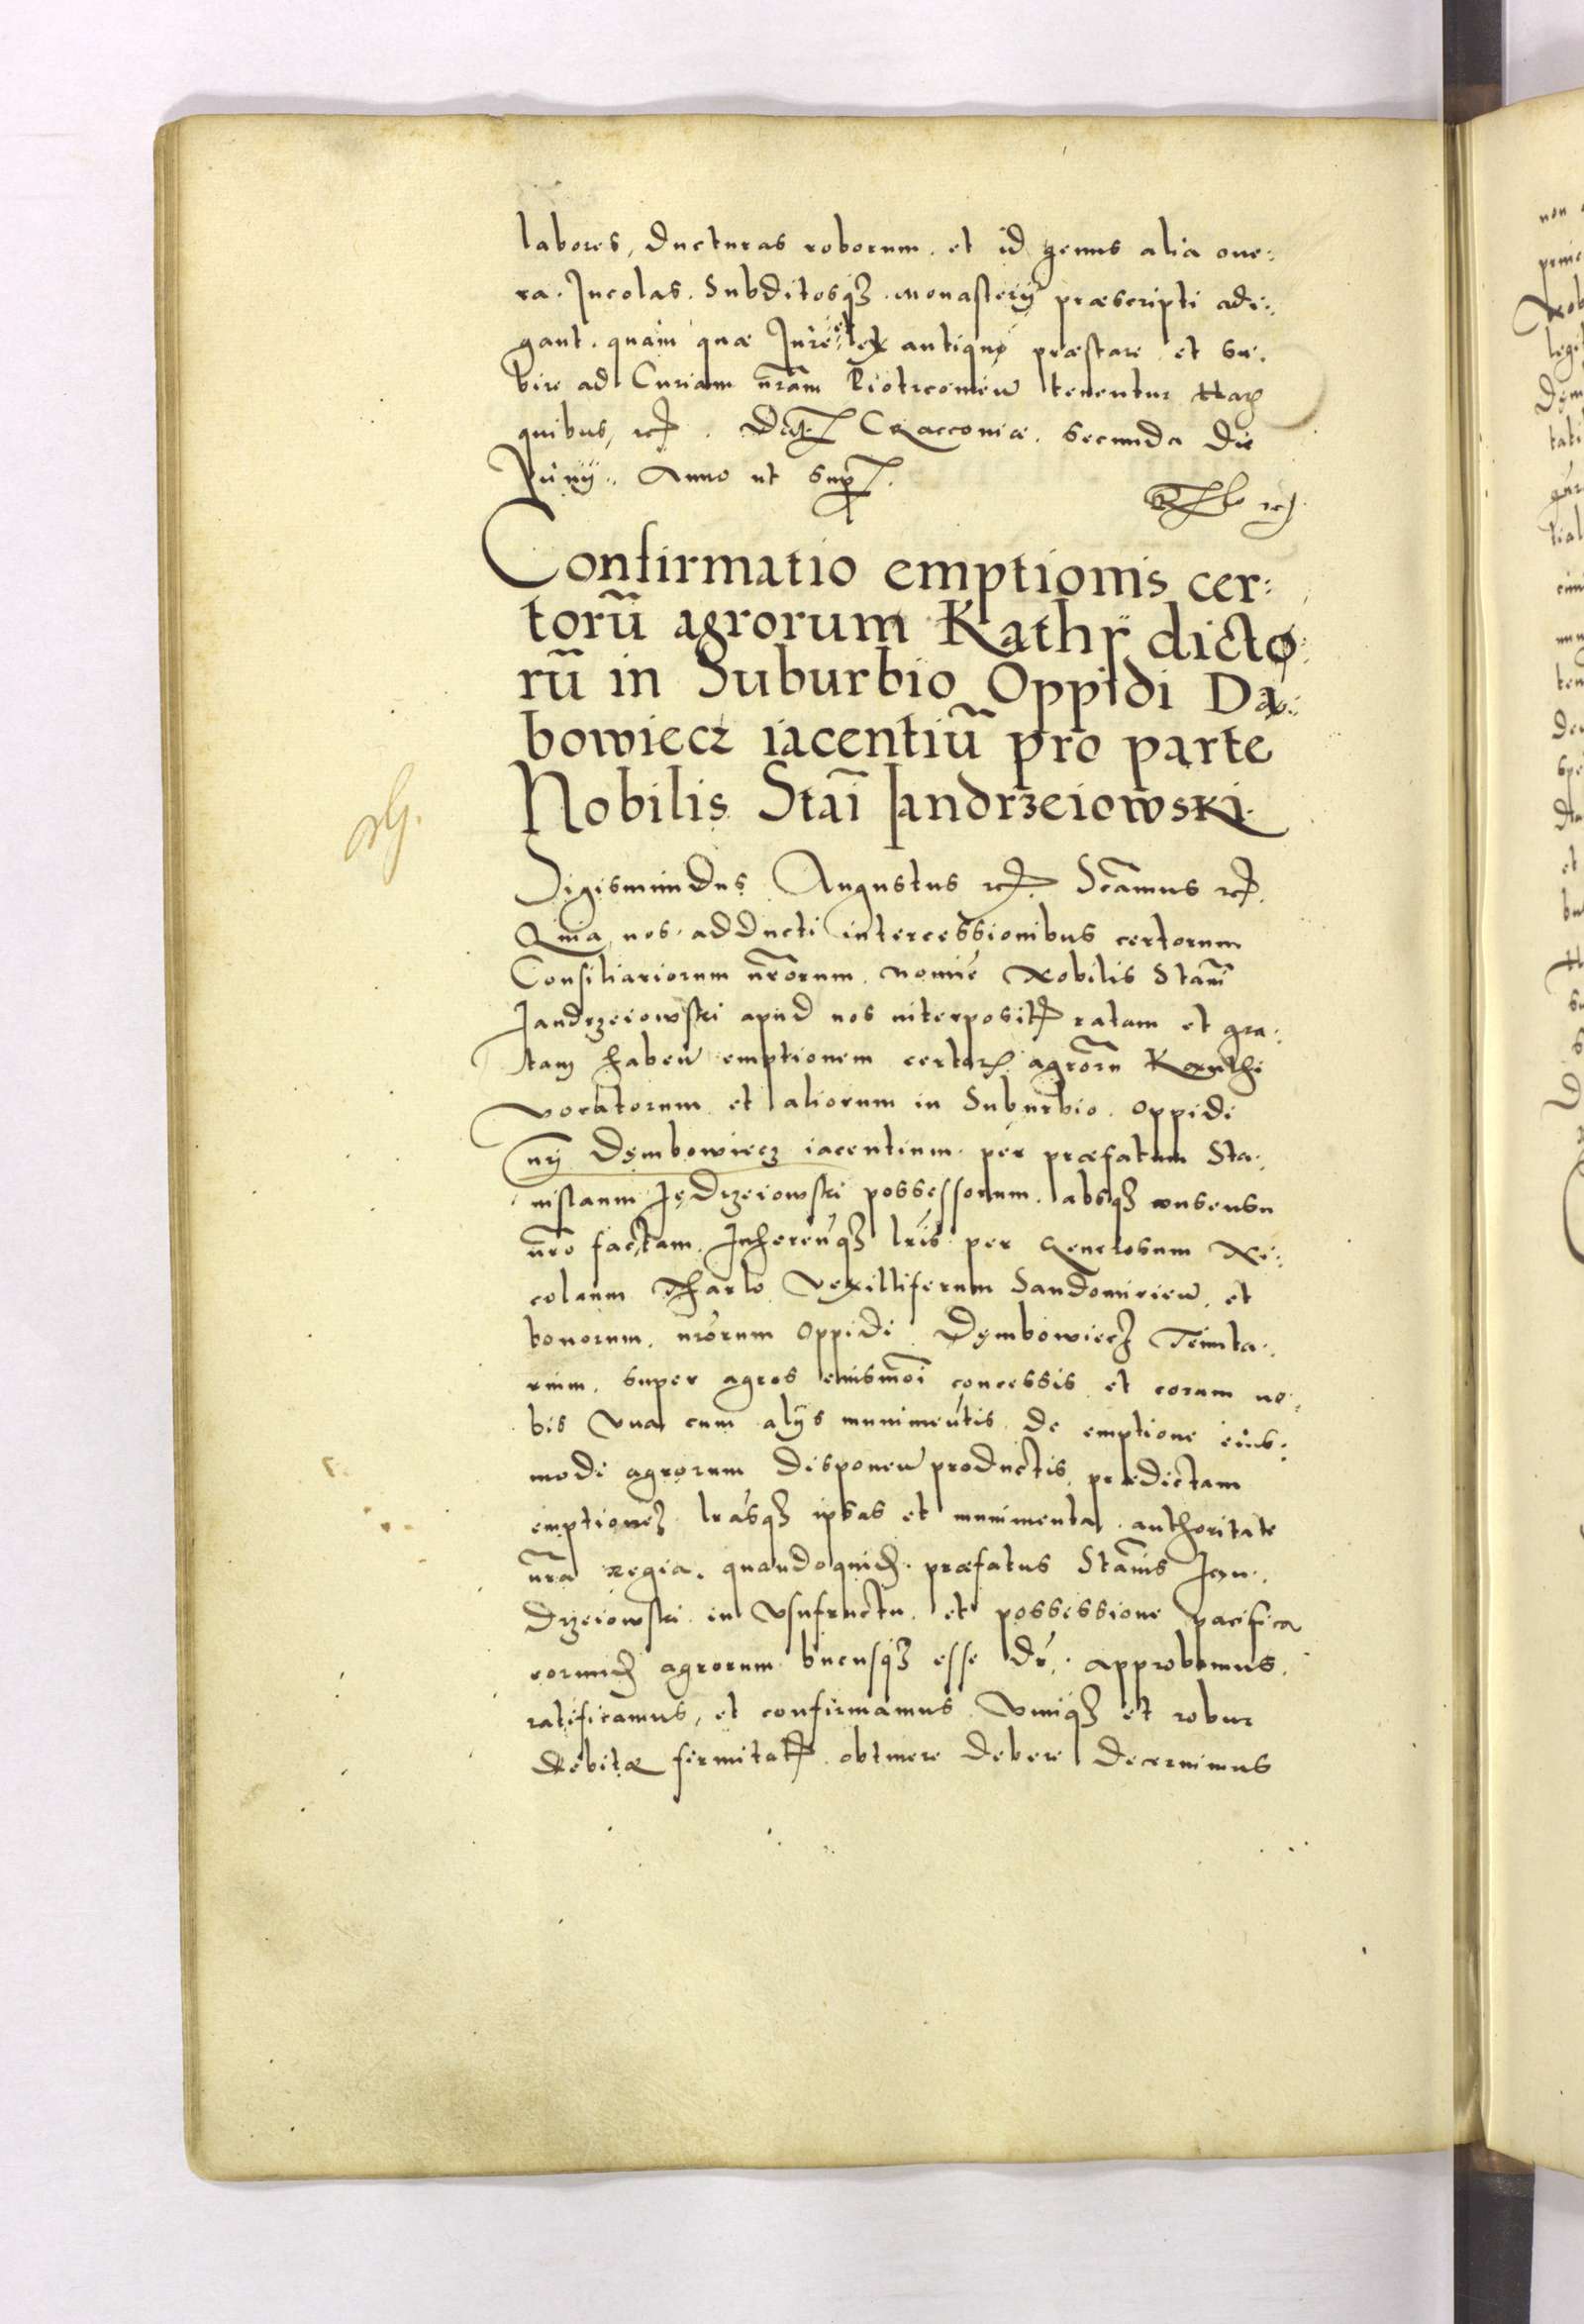 labores, ducturas roborum. et id genus alia one:
ra. Incolas. Subditosq3. monasterÿ præscripti adi:
gant. quam quæ Iure et ex antiquo præstare et su:
bire ad Curiam nram Piotrcovien tenentur Har
quibus, etc. Dat. Cracoviæ. secunda die
Iunij. Anno ut supra.
Confirmatio emptionis cer:
torũ agrorum Kathy dicto:
rũ in Suburbio Oppidi Dą:
bowiecz iacentiũ pro parte
Nobilis Stai Iandrzeiowski.
Sigismundus Augustus etc. Scamus etc.
Quia nos adducti intercessionibus certorum
Consiliariorum nrorum. nomie Nobilis Stani
Iandrzeiowski apud nos interposit ratam et gra:
tam haben emptionem certor agrorũ
vocatorum et aliorum in Suburbio. oppidi
nri Dęmbowiecz iacentium. per præfatum Sta:
nislaum Iędrzeiowski possessorum. absq3 consensu
nro factam. Inherenq3 lris per Generosum Ni:
colaum Tharlo Vexilliferum Sandomirien. et
bonorum. nrorum Oppidi Dęmbowiecz Tenuta:
rium. super agros eiusmoi concessis et coram no:
bis una cum alÿs munimentis de emptione eius:
modi agrorum disponen productis, prædictam
emptionem lrasq3 ipsas et munimenta. authoritate
nra regia. quandoquid. præfatus Stanis Ian:
drzeiowski in usufructu. et possessione pacifica
eorund agrorum hucusq3 esse dr. approbamus.
ratificamus, et confirmamus. Vimq3 et robur
debitæ firmitat obtinere debere decernimus